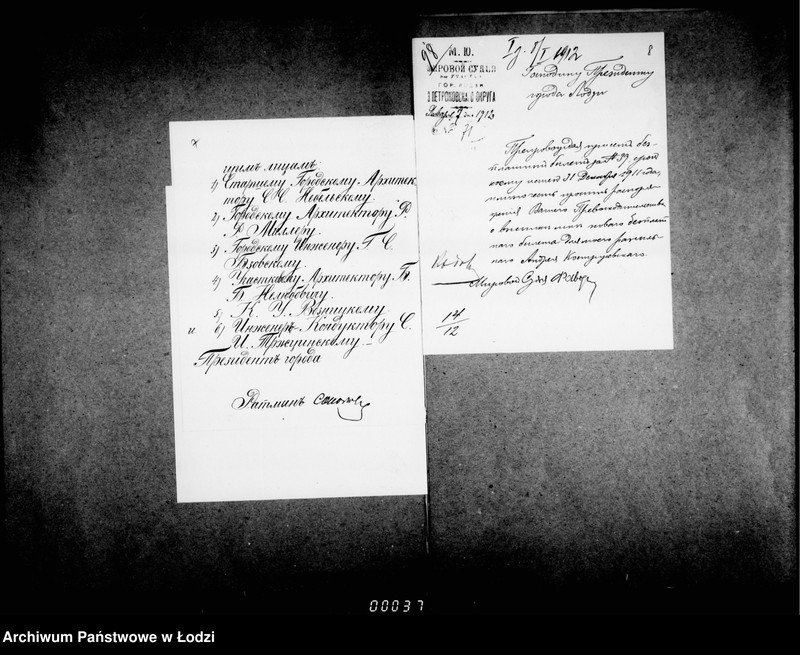 щимъ лицамъ:
1) Старшему Городскому Архитек-
тору С. Небельскому.
2) Городскому Архитектору Ф.
Ф. Миллеру.
3) Городскому Инженеру Г. С.
4) Участковому Архитектору П.
П.
5) К. У.
и 6) Инженеръ-Кондуктору С.
И. Тржцинскому.
Президентъ города
Ратманъ
98
М. Ю.
МИРОВОЙ СУДЬЯ
ГОР. ЛОДЗИ
3 ПЕТРОКОВСКАГО ОКРУГА
Января 4 дня 1912
№ 71
5/I 1912
8
Господину Президенту
города Лодзи
Препровождая при семъ без-
платный билетъ за № 39, срокъ
коему истекъ 31 Декабря 1911 года,
имѣю честь просить распоря-
женія Вашего Превосходительства
о высылкѣ мнѣ новаго безплат-
наго билета для моего разсыль-
наго Андрея
Мировой Судья
14/12
00037
Archiwum Państwowe w Łodzi